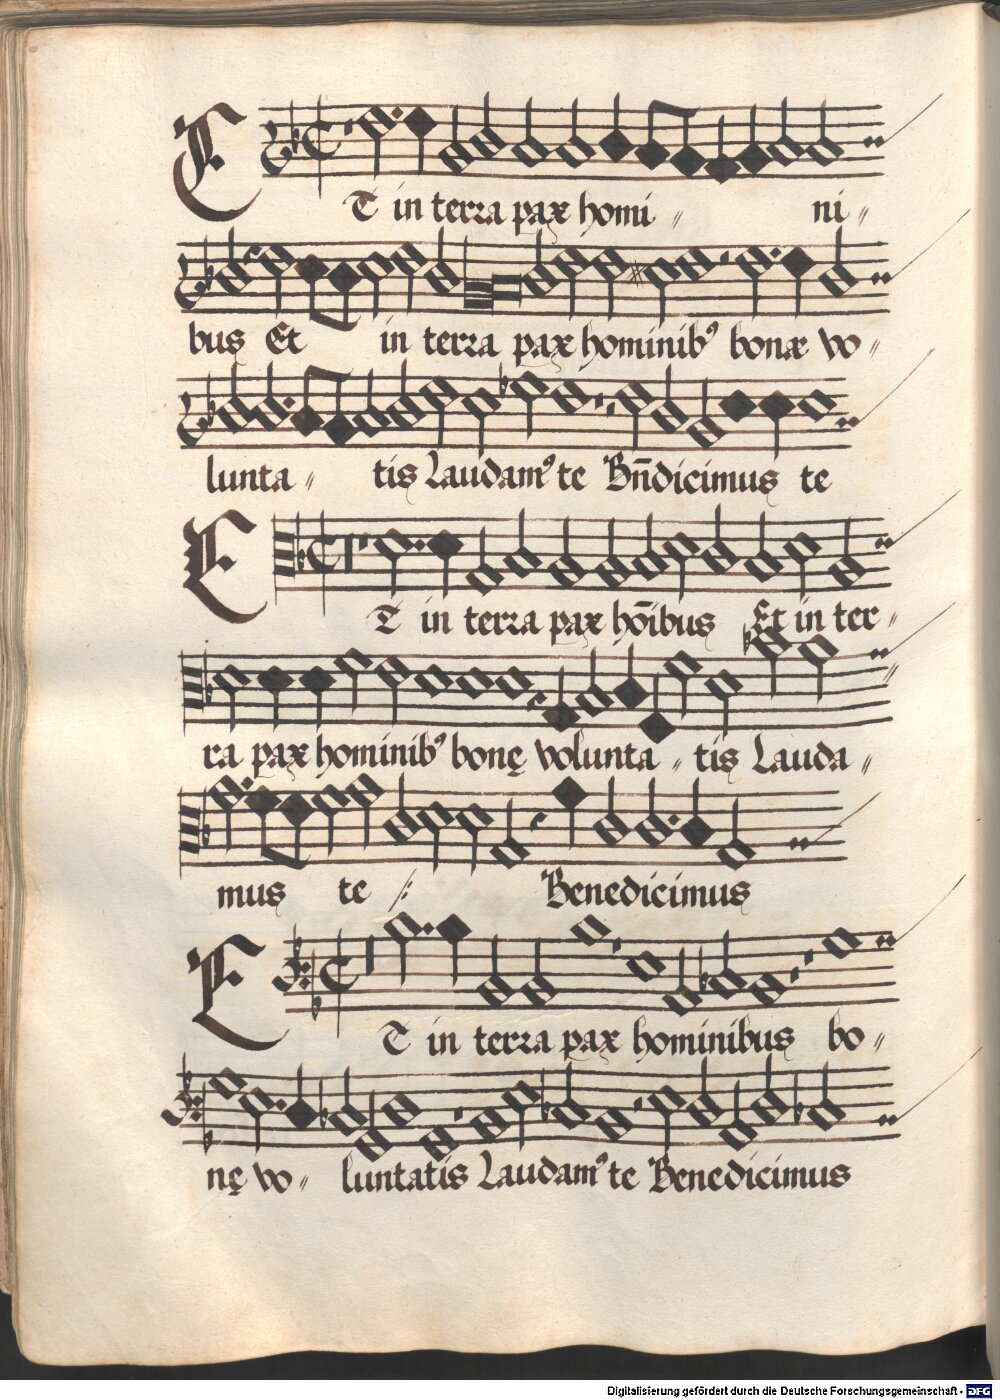 ET in terra pax homi〃 ni〃
bus Et in terra pax hominibꝰ bonæ vo〃
lunta〃 tis Laudamꝰ te Bn̄dicimus te
ET in terra pax hōibus Et in ter〃
ra pax hominibꝰ bonę volunta〃tis Lauda〃
mus te :/: Benedicimus
ET in terra pax hominibus bo〃
nę vo〃 luntatis Laudamꝰ te Benedicimus
Digitalisierung gefördert durch die Deutsche Forschungsgemeinschaft - DFG